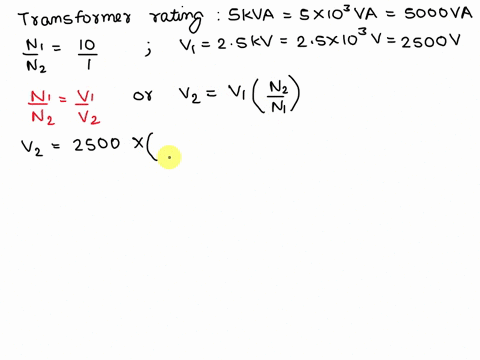 Transformer rating : 5kVA = 5×10³ VA = 5000VA
N₁/N₂ = 10/1 ; V₁ = 2.5kV = 2.5×10³ V = 2500V
N₁/N₂ = V₁/V₂ or V₂ = V₁ (N₂/N₁)
V₂ = 2500 × (